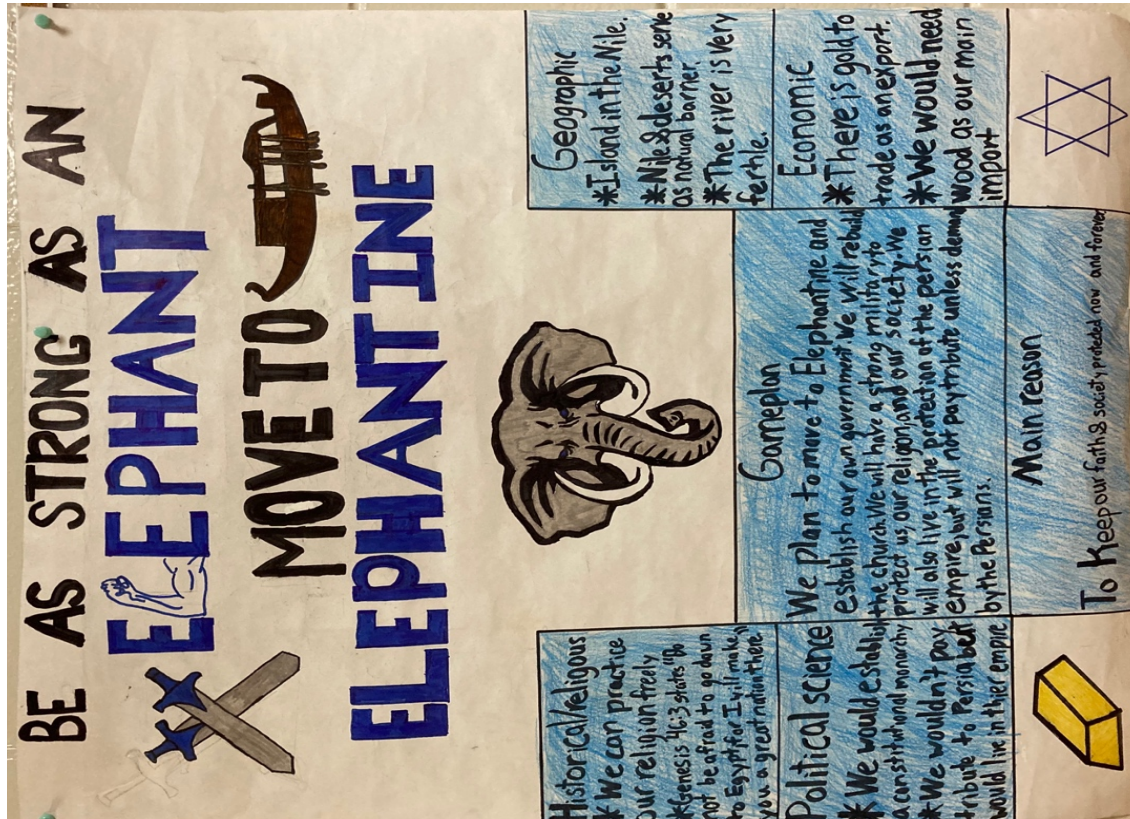 BE AS STRONG AS AN
ELEPHANT
MOVE TO
ELEPHANTINE
Historical/religous
* We can practice
our religion freely
*Genesis 46:3 states "Do
not be afraid to go down
to Egypt for I will make
you a great nation there"
Political science
* We would establish
a constitutional monarchy
* We wouldn't pay
tribute to Persia but
would live in thier empire
Gameplan
We plan to more to Elephantine and
establish our own government. We will rebuild
the church. We will have a strong military to
protect us, our religion, and our society. We
will also live in the protection of the persian
empire, but will not pay tribute unless demand
by the Persians.
Main reason
To Keep our faith & society protected now and forever
Geographic
*Island in the Nile.
*Nile & deserts serve
as natural barrier.
*The river is very
fertile.
Economic
*There is gold to
trade as an export.
*We would need
wood as our main
import